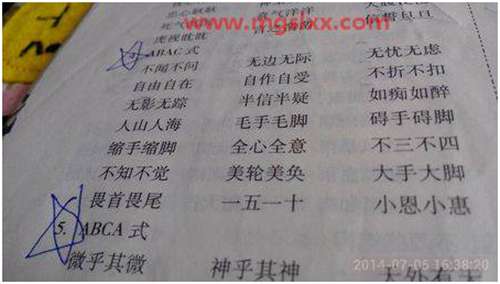 忠心耿耿
www.mgslxx.com
虎视眈眈
ABAC 式
不闻不问 无边无际 无忧无虑
自由自在 自作自受 不折不扣
无影无踪 半信半疑 如痴如醉
人山人海 毛手毛脚 碍手碍脚
缩手缩脚 全心全意 不三不四
不知不觉 美轮美奂 大手大脚
畏首畏尾 一五一十 小恩小惠
5. ABCA 式
微乎其微 神乎其神 天外有天
2014-07-05 16:38:20